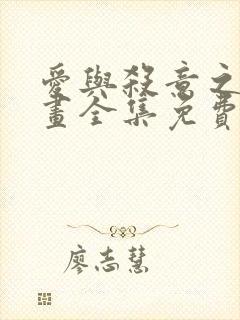 愛與殺意之
畫全集免費
廖志慧